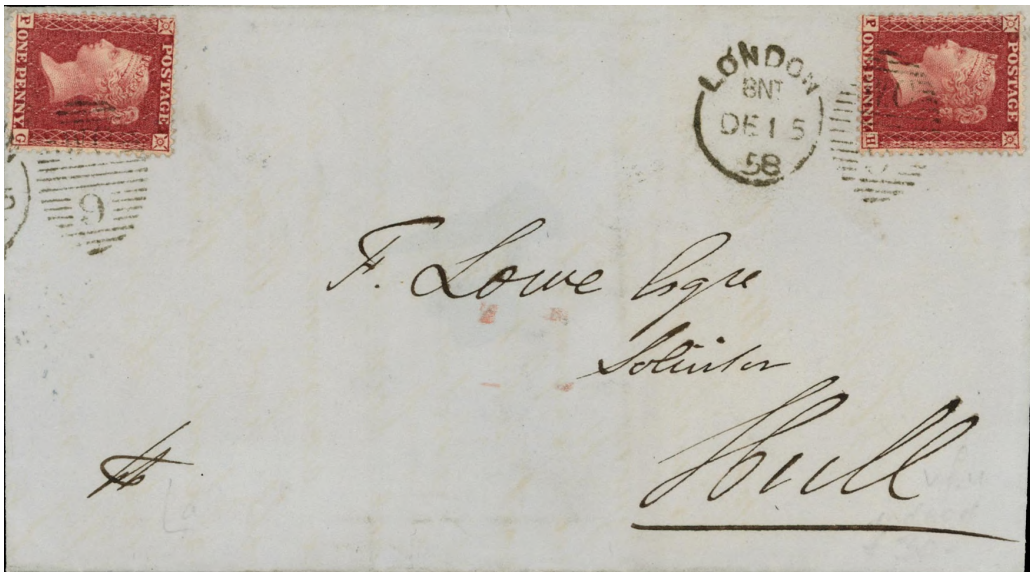 POSTAGE
P ONE PENNY G
6
LONDON
8NT
DE 15
58
POSTAGE
P ONE PENNY H
F. Lowe Esqre
Solicitor
Hull